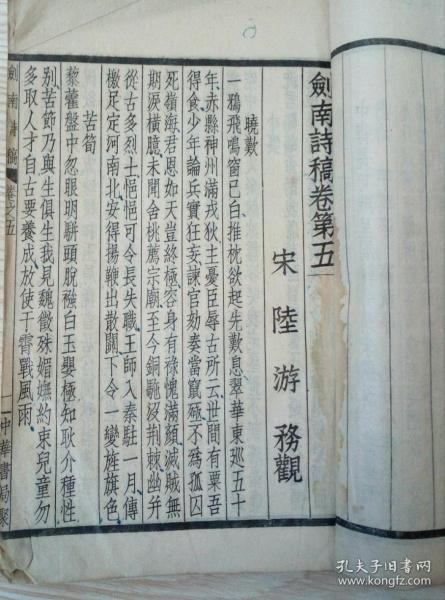 劍南詩稿卷第五
宋陸游務觀
曉歎
一鴉飛鳴窗已白推枕欲起先歎息翠華東巡五十
年赤縣神州滿戎狄主憂臣辱古所云世間有粟吾
得食少年論兵實狂妄諫官劾奏當竄殛不爲孤囚
死嶺海君恩如天豈終極容身有祿愧滿顏滅賊無
期淚橫臆未聞含桃薦宗廟至今銅駝沒荆棘幽并
從古多烈士悒悒可令長失職王師入秦駐一月傳
檄足定河南北安得揚鞭出散關下令一變旌旗色
苦筍
藜藿盤中忽眼明駢頭脫襁白玉嬰極知耿介種性
別苦節乃與生俱生我見魏徵殊媚嫵約束兒童勿
多取人才自古要養成放使干霄戰風雨
劍南詩稿
卷之五
一中華書局聚
孔夫子旧书网
www.kongfz.com